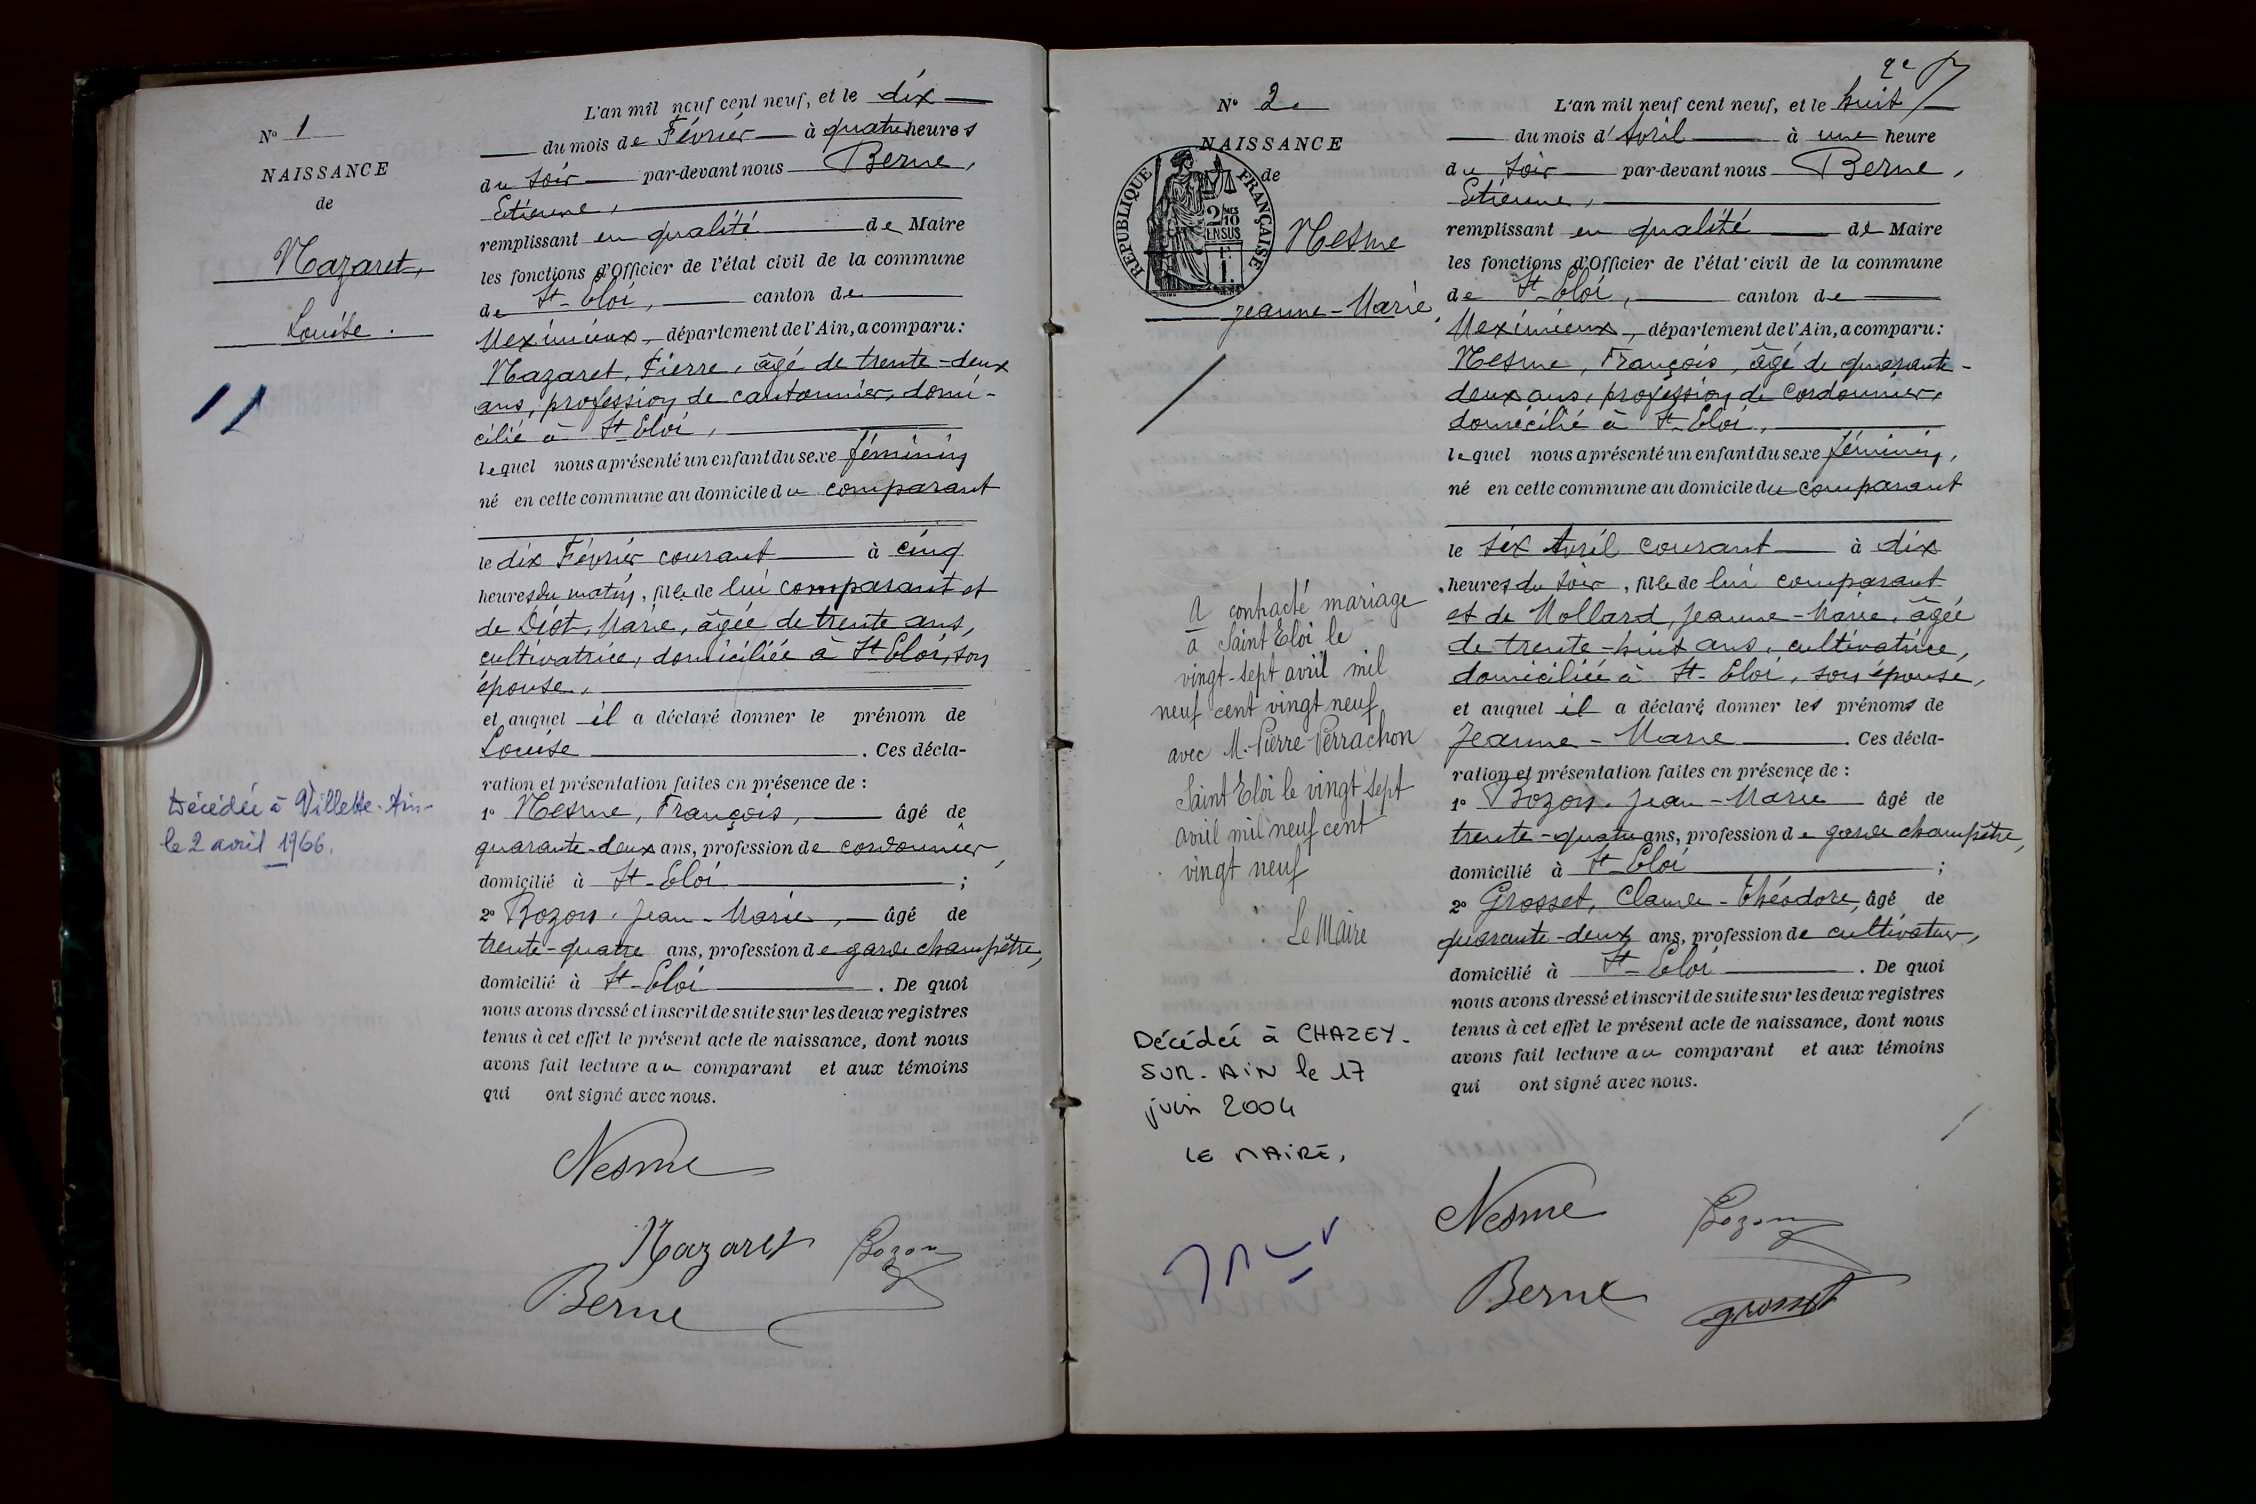 N° 1
NAISSANCE
de
Nazaret,
Louise.
Décédée à Villette-Ain-
le 2 avril 1966.
L'an mil neuf cent neuf, et le dix
du mois de Février à quatre heures
du soir par-devant nous Berne,
Etienne,
remplissant en qualité de Maire
les fonctions d'Officier de l'état civil de la commune
de St-Eloi, canton de
Meximieux, département de l'Ain, a comparu :
Nazaret, Pierre, âgé de trente-deux
ans, profession de cantonnier, domi-
cilié à St-Eloi,
lequel nous a présenté un enfant du sexe féminin
né en cette commune au domicile du comparant
le dix Février courant à cinq
heures du matin, fille de lui comparant et
de Diot, Marie, âgée de trente ans,
cultivatrice, domiciliée à St Eloi, son
épouse,
et auquel il a déclaré donner le prénom de
Louise. Ces décla-
ration et présentation faites en présence de :
1° Nesme, François, âgé de
quarante-deux ans, profession de cordonnier,
domicilié à St-Eloi ;
2° Bozon, Jean-Marie, âgé de
trente-quatre ans, profession de garde champêtre,
domicilié à St-Eloi. De quoi
nous avons dressé et inscrit de suite sur les deux registres
tenus à cet effet le présent acte de naissance, dont nous
avons fait lecture au comparant et aux témoins
qui ont signé avec nous.
Nesme
Nazaret Bozon
Berne
2e
N° 2.
NAISSANCE
de
REPUBLIQUE FRANÇAISE
2/10 EN SUS
Nesme
Jeanne-Marie,
A contracté mariage
à Saint Eloi le
vingt-sept avril mil
neuf cent vingt neuf
avec M. Pierre Perrachon
Saint Eloi le vingt sept
avril mil neuf cent
vingt neuf
Le Maire
Décédée à CHAZEY-
SUR-AIN le 17
juin 2004
LE MAIRE,
L'an mil neuf cent neuf, et le huit
du mois d'Avril à une heure
du soir par-devant nous Berne,
Etienne,
remplissant en qualité de Maire
les fonctions d'Officier de l'état civil de la commune
de St-Eloi, canton de
Meximieux, département de l'Ain, a comparu :
Nesme, François, âgé de quarante-
deux ans, profession de cordonnier,
domicilié à St-Eloi,
lequel nous a présenté un enfant du sexe féminin,
né en cette commune au domicile du comparant
le six Avril courant à dix
heures du soir, fille de lui comparant
et de Mollard, Jeanne-Marie, âgée
de trente-huit ans, cultivatrice,
domiciliée à St-Eloi, son épouse,
et auquel il a déclaré donner les prénoms de
Jeanne-Marie. Ces décla-
ration et présentation faites en présence de :
1° Bozon, Jean-Marie âgé de
trente-quatre ans, profession de garde champêtre,
domicilié à St-Eloi ;
2° Grosset, Claude-Théodore, âgé de
quarante-deux ans, profession de cultivateur,
domicilié à St-Eloi. De quoi
nous avons dressé et inscrit de suite sur les deux registres
tenus à cet effet le présent acte de naissance, dont nous
avons fait lecture au comparant et aux témoins
qui ont signé avec nous.
Nesme Bozon
Berne Grosset